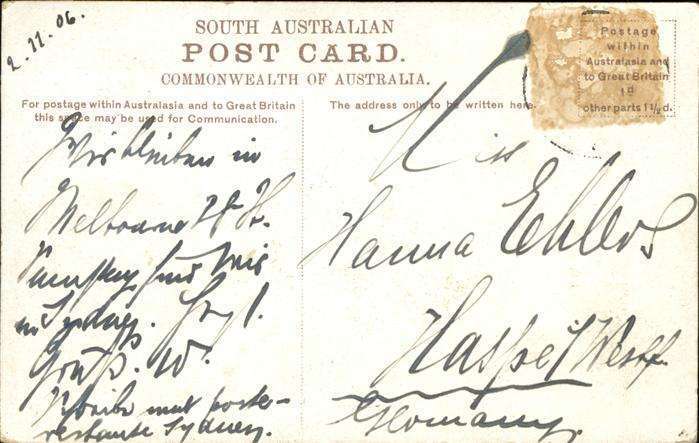 2.11.06.
SOUTH AUSTRALIAN
POST CARD.
COMMONWEALTH OF AUSTRALIA.
For postage within Australasia and to Great Britain
this space may be used for Communication.
The address only to be written here.
Postage
within
Australasia and
to Great Britain
1d
other parts 1½d.
Wir bleiben in
Melbourne
sind wir
in Sydney.
Gruß. W.
Schreibe mal poste-
restante Sydney.
Miss
Hanna Ehlers
Haspe i/Westf.
Germany.